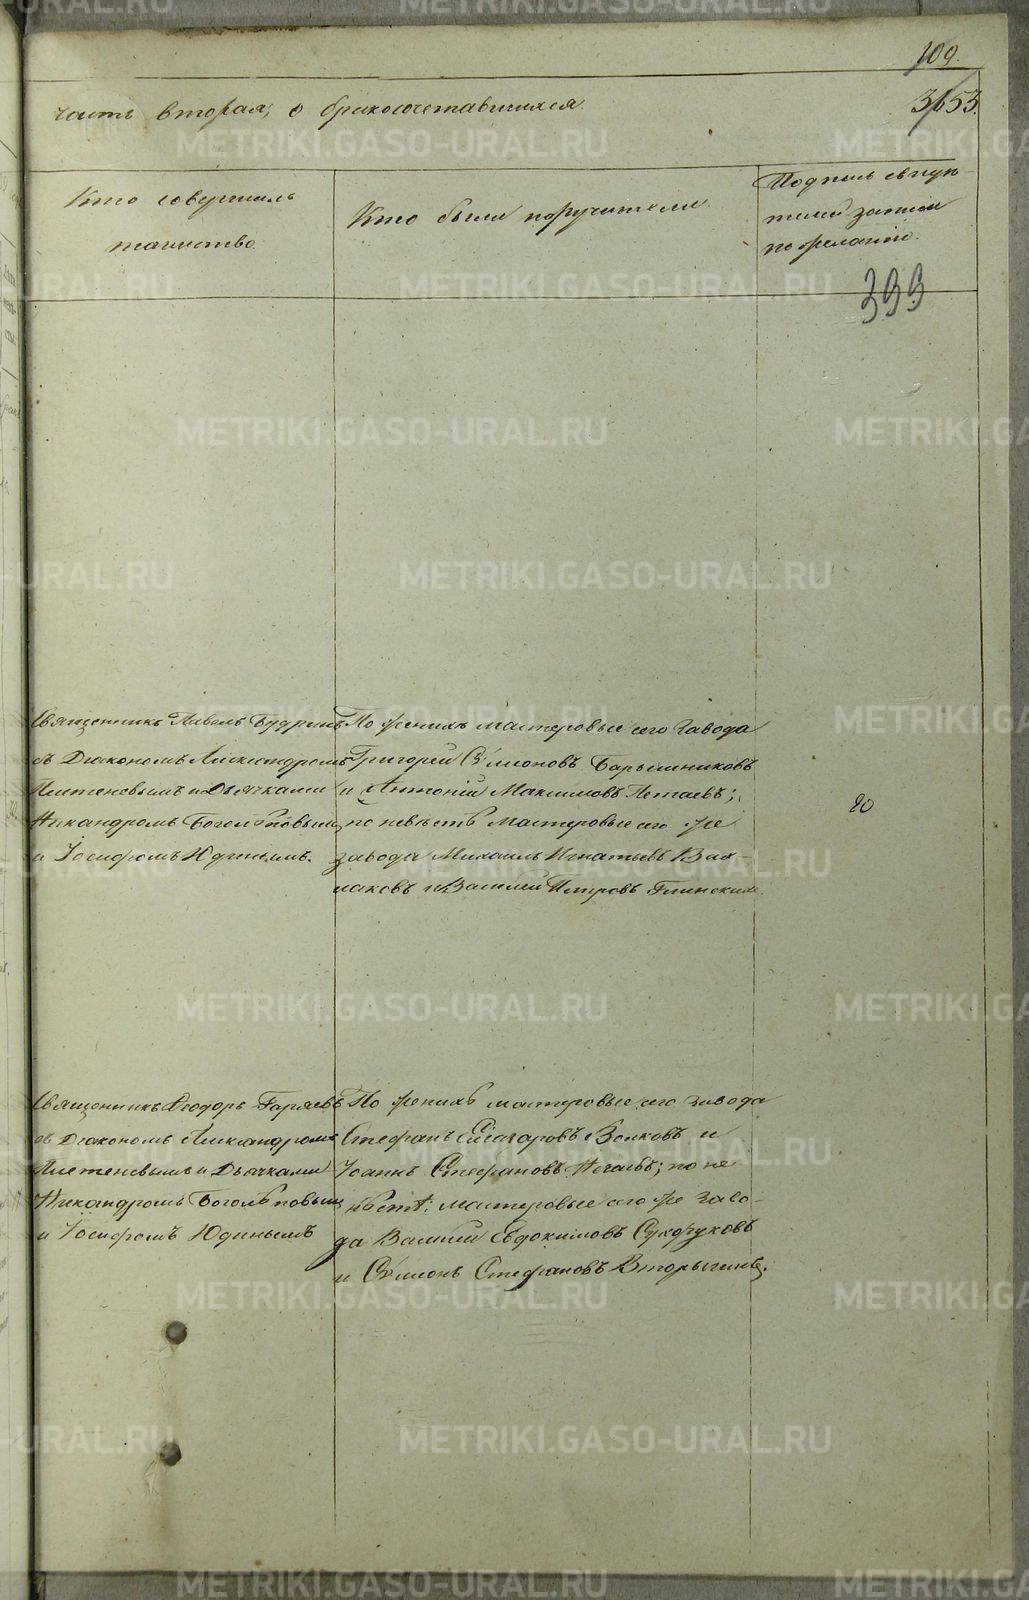 109.
часть вторая, о бракосочетавшихся.
3653.
Кто совершилъ
таинство.
Кто были поручители.
Подпись свидѣ-
телей записи
по желанію.
399
Священникъ Павелъ Будринъ
съ Діакономъ Александромъ
Плетеневымъ и Дьячками
Никандромъ Боголѣповымъ
и Іосифомъ Юдинымъ.
По женихѣ мастеровые сего завода
Григорій Сѵмеоновъ Барышниковъ
и Антоній Максимовъ Петаевъ;
по невѣстѣ мастеровые сего же
завода Михаилъ Игнатьевъ Вах-
лаковъ и Василій Петровъ Глинскихъ.
80
Священникъ Ѳеодоръ Гаряевъ
съ Діакономъ Александромъ
Плетеневымъ и Дьячками
Никандромъ Боголѣповымъ
и Іосифомъ Юдинымъ
По женихѣ мастеровые сего завода
Стефанъ Елеазаровъ Волковъ и
Іоаннъ Стефановъ Нечаевъ; по не-
вѣстѣ: мастеровые сего же заво-
да Василій Евдокимовъ Сухоруковъ
и Сѵмеонъ Стефановъ Вторыгинъ.
METRIKI.GASO-URAL.RU